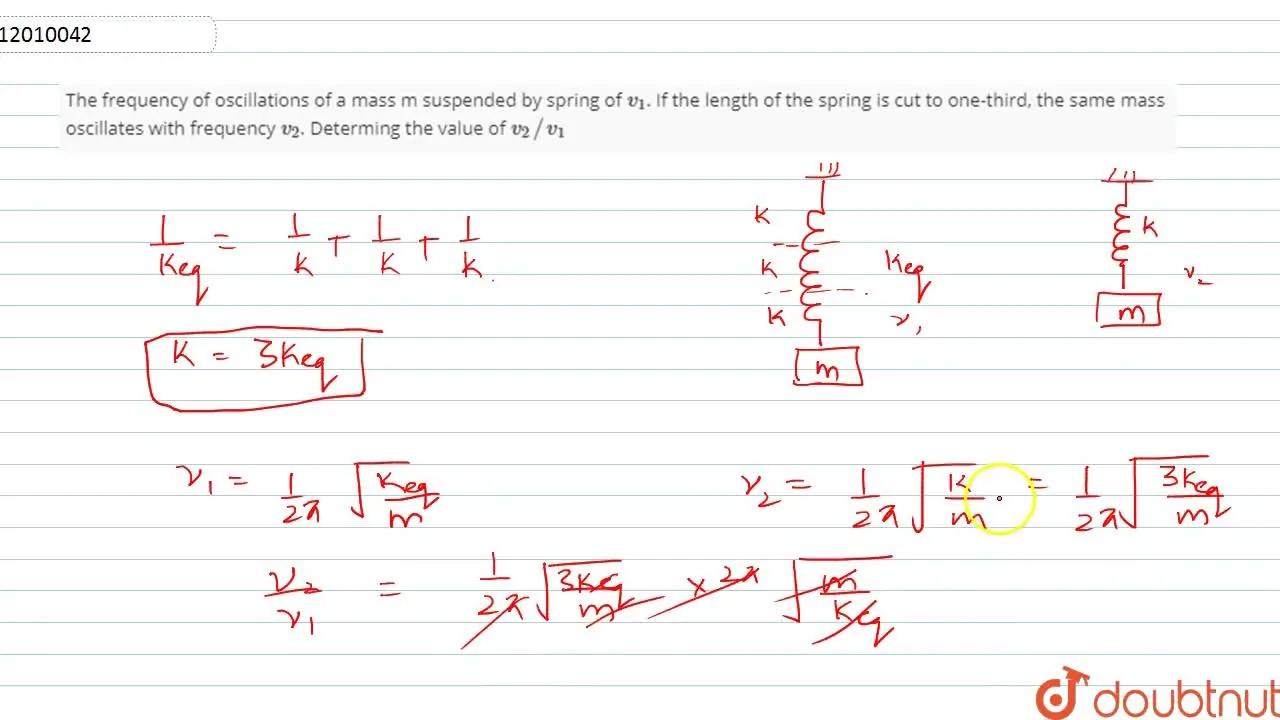 12010042
The frequency of oscillations of a mass m suspended by spring of v₁. If the length of the spring is cut to one-third, the same mass
oscillates with frequency v₂. Determing the value of v₂ / v₁
1/Keq = 1/K + 1/K + 1/K
K = 3Keq
K
K
K
Keq
ν₁
m
K
ν₂
m
ν₁ = 1/2π √(Keq/m)
ν₂ = 1/2π √(K/m) = 1/2π √(3Keq/m)
ν₂/ν₁ = 1/2π √(3Keq/m) × 2π √(m/Keq)
doubtnut